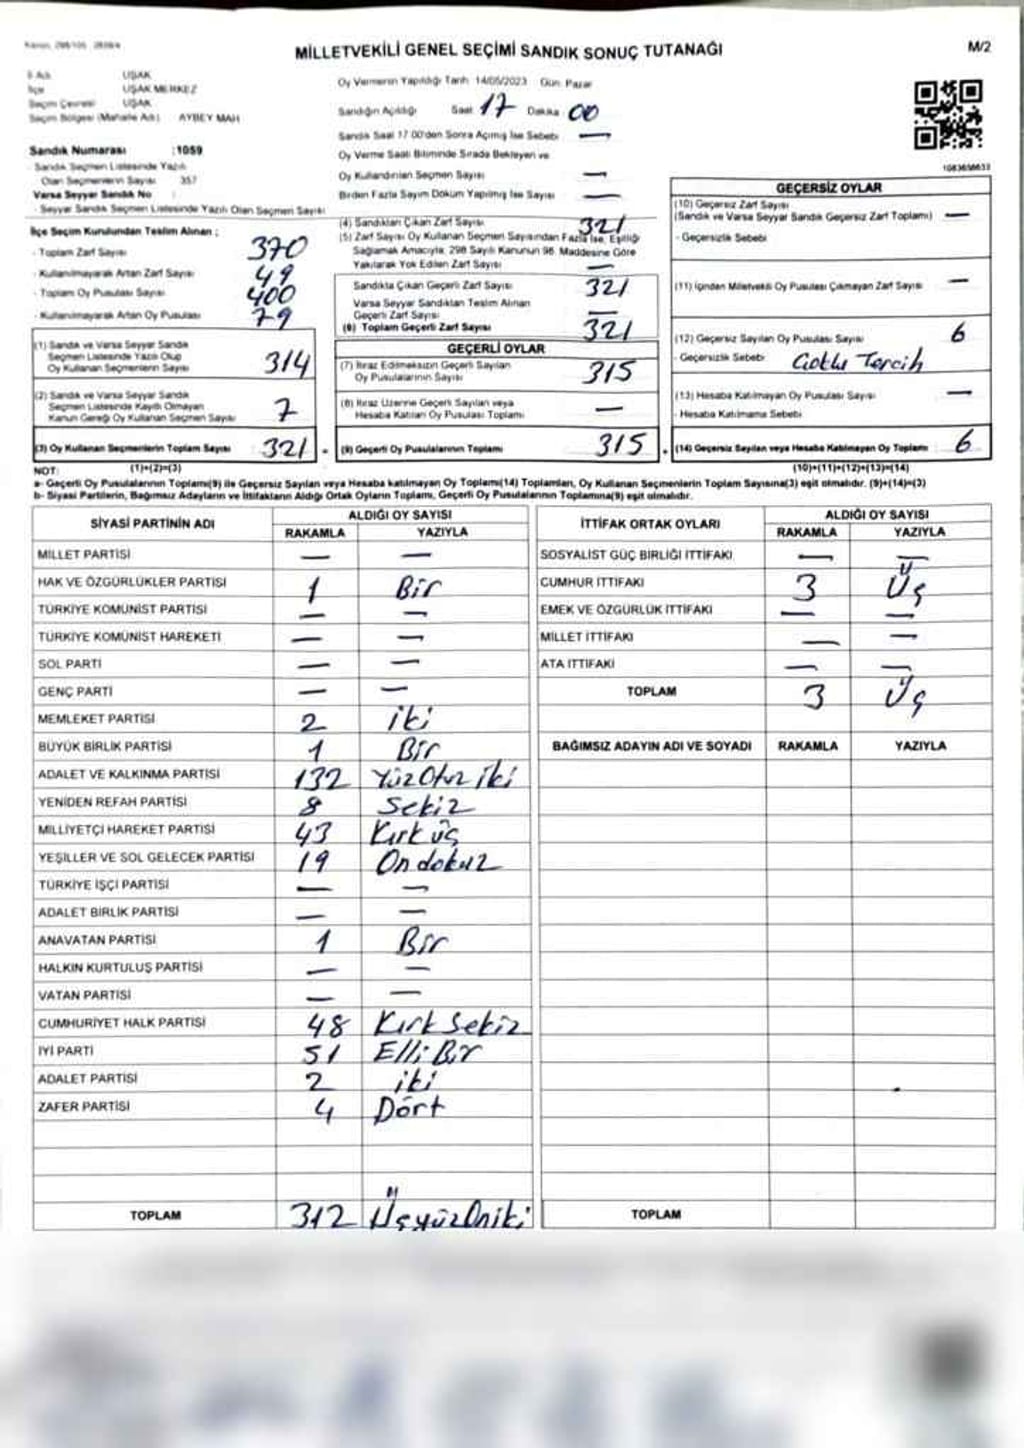 MİLLETVEKİLİ GENEL SEÇİMİ SANDIK SONUÇ TUTANAĞI
M/2
İl Adı UŞAK
İlçe UŞAK MERKEZ
Seçim Çevresi UŞAK
Seçim Bölgesi (Mahalle Adı) AYBEY MAH
Sandık Numarası :1059
- Sandık Seçmen Listesinde Yazılı
Olan Seçmenlerin Sayısı 357
Varsa Seyyar Sandık No :
- Seyyar Sandık Seçmen Listesinde Yazılı Olan Seçmen Sayısı
İlçe Seçim Kurulundan Teslim Alınan ;
- Toplam Zarf Sayısı 370
- Kullanılmayarak Artan Zarf Sayısı 49
- Toplam Oy Pusulası Sayısı 400
- Kullanılmayarak Artan Oy Pusulası 79
(1) Sandık ve Varsa Seyyar Sandık
Seçmen Listesinde Yazılı Olup
Oy Kullanan Seçmenlerin Sayısı 314
(2) Sandık ve Varsa Seyyar Sandık
Seçmen Listesinde Kayıtlı Olmayan
Kanun Gereği Oy Kullanan Seçmen Sayısı 7
(3) Oy Kullanan Seçmenlerin Toplam Sayısı 321
(1)+(2)=(3)
Oy Vermenin Yapıldığı Tarih 14/05/2023 Gün: Pazar
Sandığın Açıldığı Saat 17 Dakika 00
Sandık Saat 17:00'den Sonra Açılmış İse Sebebi —
Oy Verme Saati Bitiminde Sırada Bekleyen ve
Oy Kullandırılan Seçmen Sayısı —
Birden Fazla Sayım Döküm Yapılmış İse Sayısı —
(4) Sandıktan Çıkan Zarf Sayısı 321
(5) Zarf Sayısı Oy Kullanan Seçmen Sayısından Fazla İse, Eşitliği
Sağlamak Amacıyla, 298 Sayılı Kanunun 98. Maddesine Göre
Yakılarak Yok Edilen Zarf Sayısı —
Sandıkta Çıkan Geçerli Zarf Sayısı 321
Varsa Seyyar Sandıktan Teslim Alınan
Geçerli Zarf Sayısı —
(6) Toplam Geçerli Zarf Sayısı 321
GEÇERLİ OYLAR
(7) İtiraz Edilmeksizin Geçerli Sayılan
Oy Pusulalarının Sayısı 315
(8) İtiraz Üzerine Geçerli Sayılan veya
Hesaba Katılan Oy Pusulası Toplamı —
(9) Geçerli Oy Pusulalarının Toplamı 315
GEÇERSİZ OYLAR
(10) Geçersiz Zarf Sayısı
(Sandık ve Varsa Seyyar Sandık Geçersiz Zarf Toplamı) —
- Geçersizlik Sebebi
(11) İçinden Milletvekili Oy Pusulası Çıkmayan Zarf Sayısı —
(12) Geçersiz Sayılan Oy Pusulası Sayısı 6
- Geçersizlik Sebebi Çoklu Tercih
(13) Hesaba Katılmayan Oy Pusulası Sayısı —
- Hesaba Katılmama Sebebi
(14) Geçersiz Sayılan veya Hesaba Katılmayan Oy Toplamı 6
(10)+(11)+(12)+(13)=(14)
NOT:
a- Geçerli Oy Pusulalarının Toplamı(9) ile Geçersiz Sayılan veya Hesaba katılmayan Oy Toplamı(14) Toplamları, Oy Kullanan Seçmenlerin Toplam Sayısına(3) eşit olmalıdır. (9)+(14)=(3)
b- Siyasi Partilerin, Bağımsız Adayların ve İttifakların Aldığı Ortak Oyların Toplamı, Geçerli Oy Pusulalarının Toplamına(9) eşit olmalıdır.
SİYASİ PARTİNİN ADI ALDIĞI OY SAYISI
RAKAMLA YAZIYLA
MİLLET PARTİSİ — —
HAK VE ÖZGÜRLÜKLER PARTİSİ 1 Bir
TÜRKİYE KOMÜNİST PARTİSİ — —
TÜRKİYE KOMÜNİST HAREKETİ — —
SOL PARTİ — —
GENÇ PARTİ — —
MEMLEKET PARTİSİ 2 iki
BÜYÜK BİRLİK PARTİSİ 1 Bir
ADALET VE KALKINMA PARTİSİ 132 Yüz Otuz iki
YENİDEN REFAH PARTİSİ 8 Sekiz
MİLLİYETÇİ HAREKET PARTİSİ 43 Kırk üç
YEŞİLLER VE SOL GELECEK PARTİSİ 19 On dokuz
TÜRKİYE İŞÇİ PARTİSİ — —
ADALET BİRLİK PARTİSİ — —
ANAVATAN PARTİSİ 1 Bir
HALKIN KURTULUŞ PARTİSİ — —
VATAN PARTİSİ — —
CUMHURİYET HALK PARTİSİ 48 Kırk Sekiz
İYİ PARTİ 51 Elli Bir
ADALET PARTİSİ 2 iki
ZAFER PARTİSİ 4 Dört
TOPLAM 312 Üçyüz Oniki
İTTİFAK ORTAK OYLARI ALDIĞI OY SAYISI
RAKAMLA YAZIYLA
SOSYALİST GÜÇ BİRLİĞİ İTTİFAKI — —
CUMHUR İTTİFAKI 3 Üç
EMEK VE ÖZGÜRLÜK İTTİFAKI — —
MİLLET İTTİFAKI — —
ATA İTTİFAKI — —
TOPLAM 3 Üç
BAĞIMSIZ ADAYIN ADI VE SOYADI RAKAMLA YAZIYLA
TOPLAM